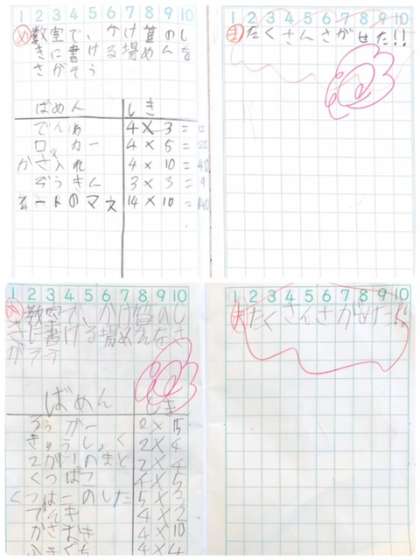 1 2 3 4 5 6 7 8 9 10
め 教室で、かけ算のし
きに書ける場めんを
さがそう
ばめん しき
でんき 4×3=12
ロッカー 4×5=
かさ入れ 4×10=40
ぞうきん 3×3=9
14×10=
1 2 3 4 5 6 7 8 9 10
たくさんさがせた!!
1 2 3 4 5 6 7 8 9 10
め 教室で、かけ算のし
きに書ける場めんをさ
がそう
ばめん しき
ロッカー 2×5
きゅうしょく 2×4
2×4
くつばこ
くつばこのした 5×3
でんき 4×2
かさおき 4×10
4×4
1 2 3 4 5 6 7 8 9 10
たくさんさがせた